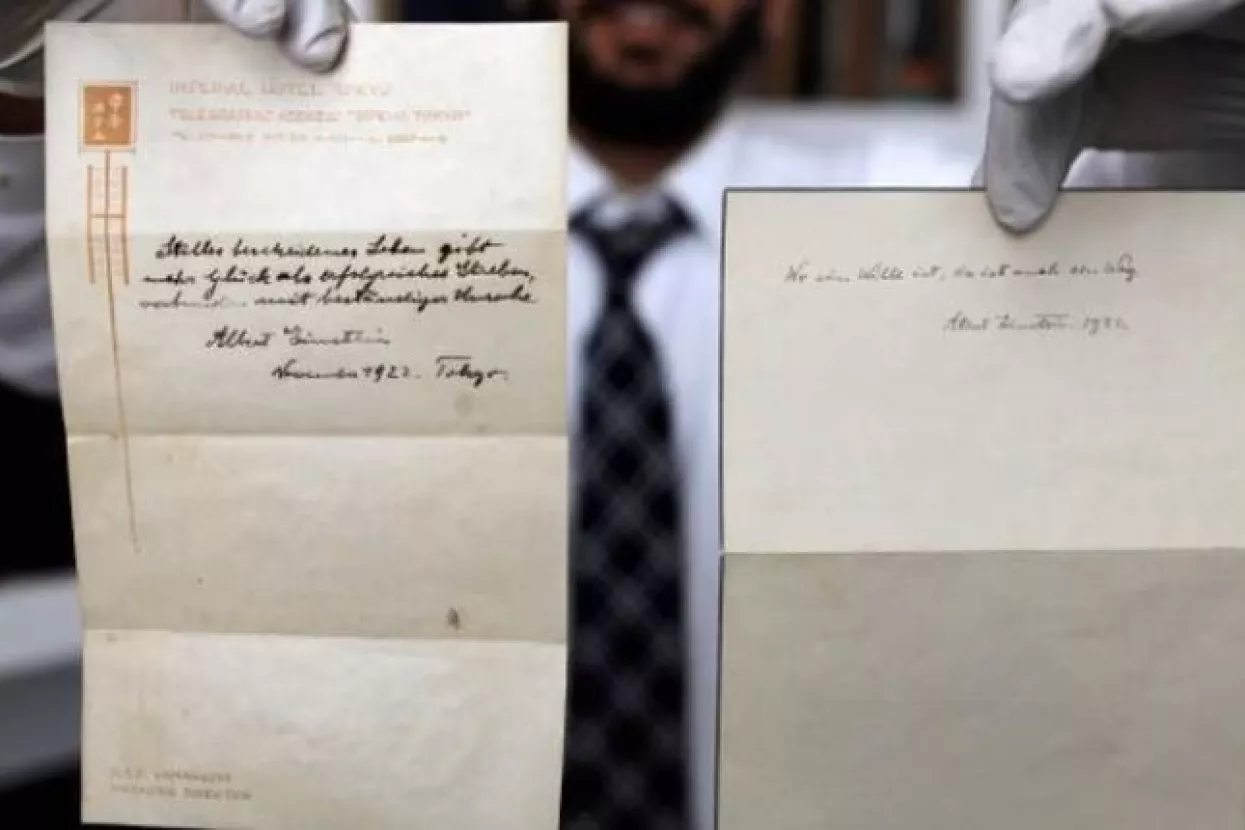 IMPERIAL HOTEL TOKYO
Stilles bescheidenes Leben gibt
mehr Glück als erfolgreiches Streben,
verbunden mit beständiger Unruhe
Albert Einstein
November 1922. Tokyo.
MANAGING DIRECTOR
Wo ein Wille ist, da ist auch ein Weg
Albert Einstein. 1922.